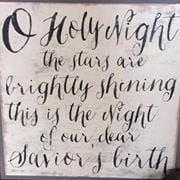 O Holy Night
the stars are
brightly shining
this is the Night
of our, dear
Savior's birth